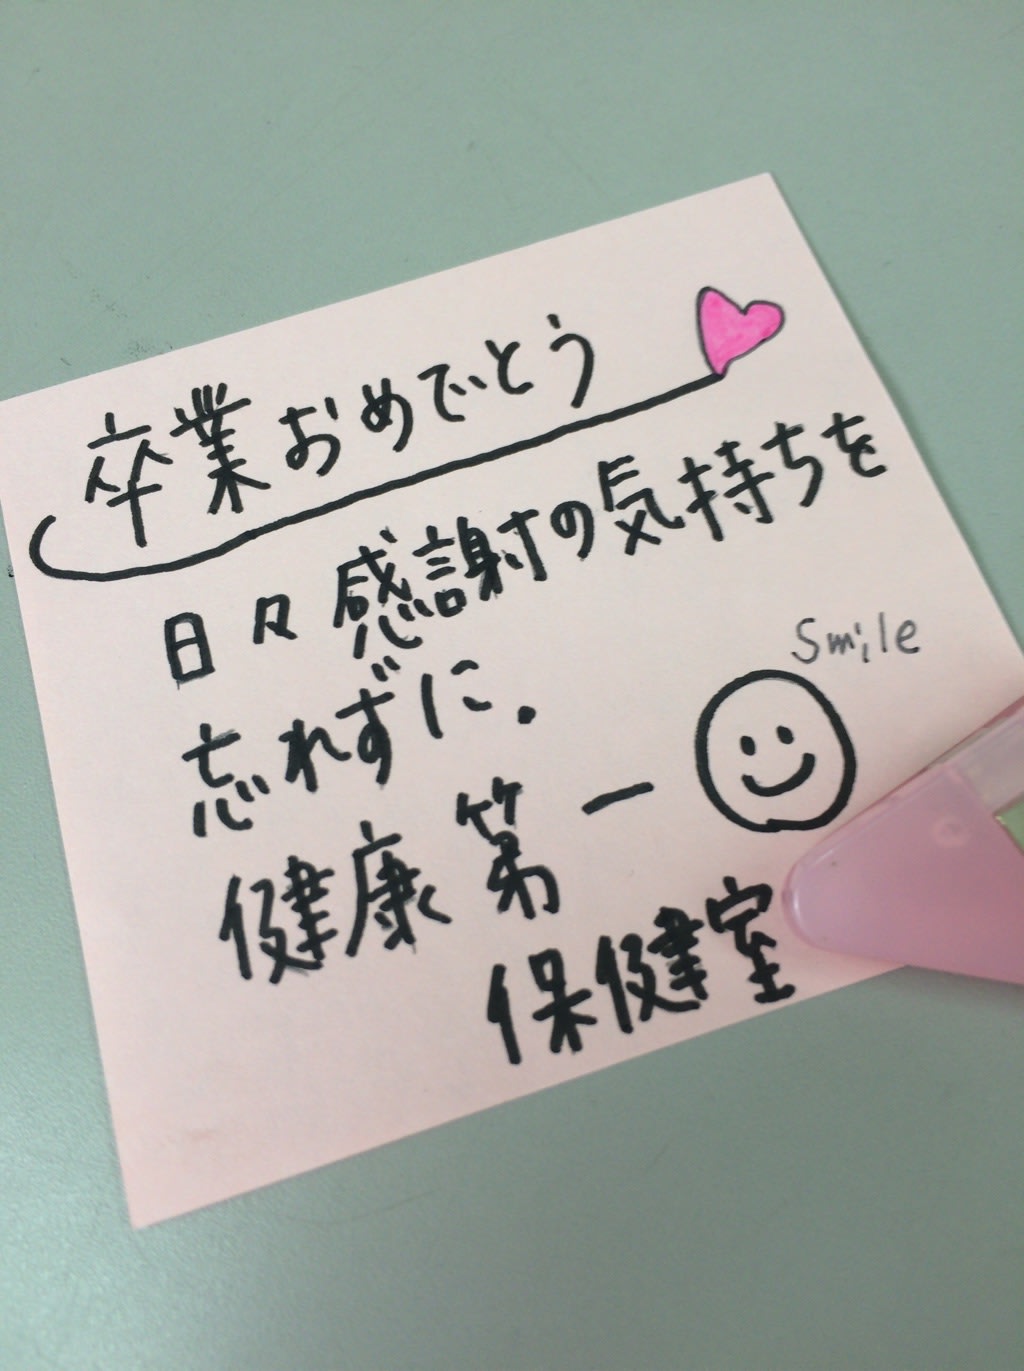 卒業おめでとう
日々感謝の気持ちを
忘れずに.
Smile
健康第一
保健室